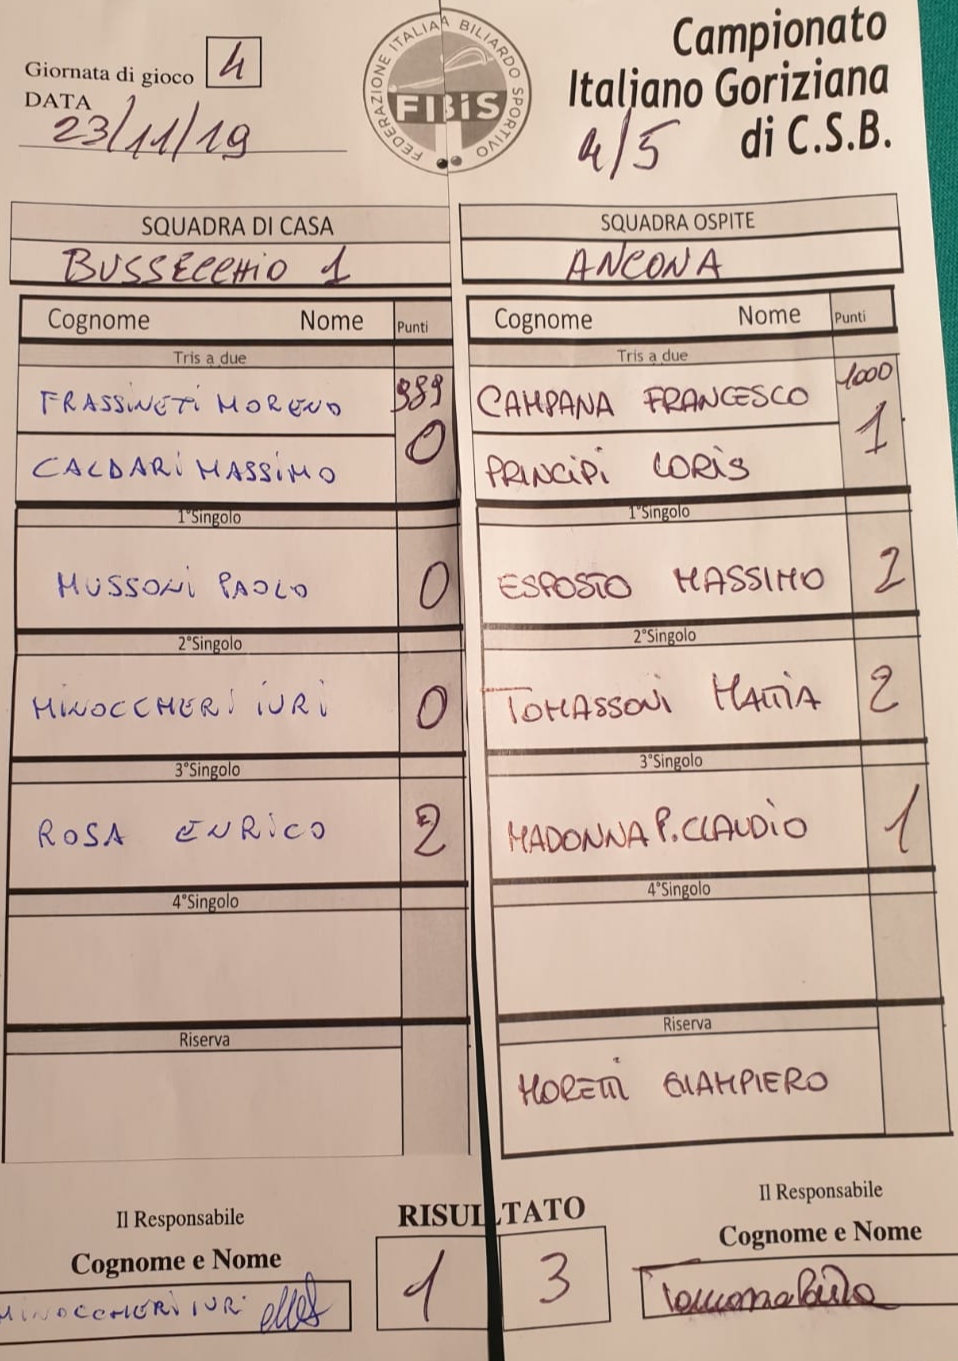 Giornata di gioco 4
DATA
23/11/19
FEDERAZIONE ITALIANA BILIARDO SPORTIVO
FIBiS
Campionato
Italiano Goriziana
di C.S.B.
4/5
SQUADRA DI CASA
BUSSECCHIO 1
Cognome Nome Punti
Tris a due
FRASSINETI MORENO 989
CALDARI MASSIMO 0
1°Singolo
MUSSONI PAOLO 0
2°Singolo
MINOCCHERI IURI 0
3°Singolo
ROSA ENRICO 2
4°Singolo
Riserva
SQUADRA OSPITE
ANCONA
Cognome Nome Punti
Tris a due
CAMPANA FRANCESCO 1000
PRINCIPI LORIS 1
1°Singolo
ESPOSTO MASSIMO 2
2°Singolo
TOMASSONI MATTIA 2
3°Singolo
MADONNA P. CLAUDIO 1
4°Singolo
Riserva
MORETTI GIAMPIERO
Il Responsabile
Cognome e Nome
MINOCCHERI IURI
RISULTATO
1 3
Il Responsabile
Cognome e Nome